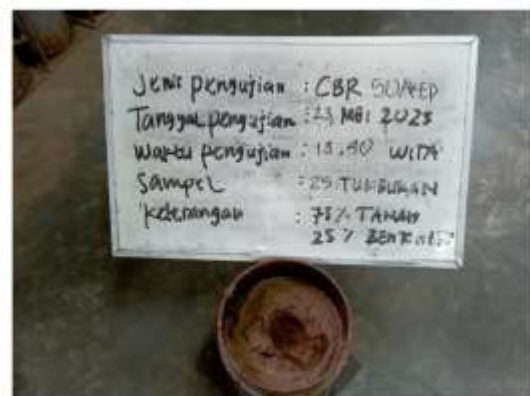 Jenis pengujian : CBR SOAKED
Tanggal pengujian : 23 MEI 2023
Waktu pengujian : 13.50 WITA
Sampel : 25 TUMBUKAN
Keterangan : 75% TANAH
25% BENTONIT